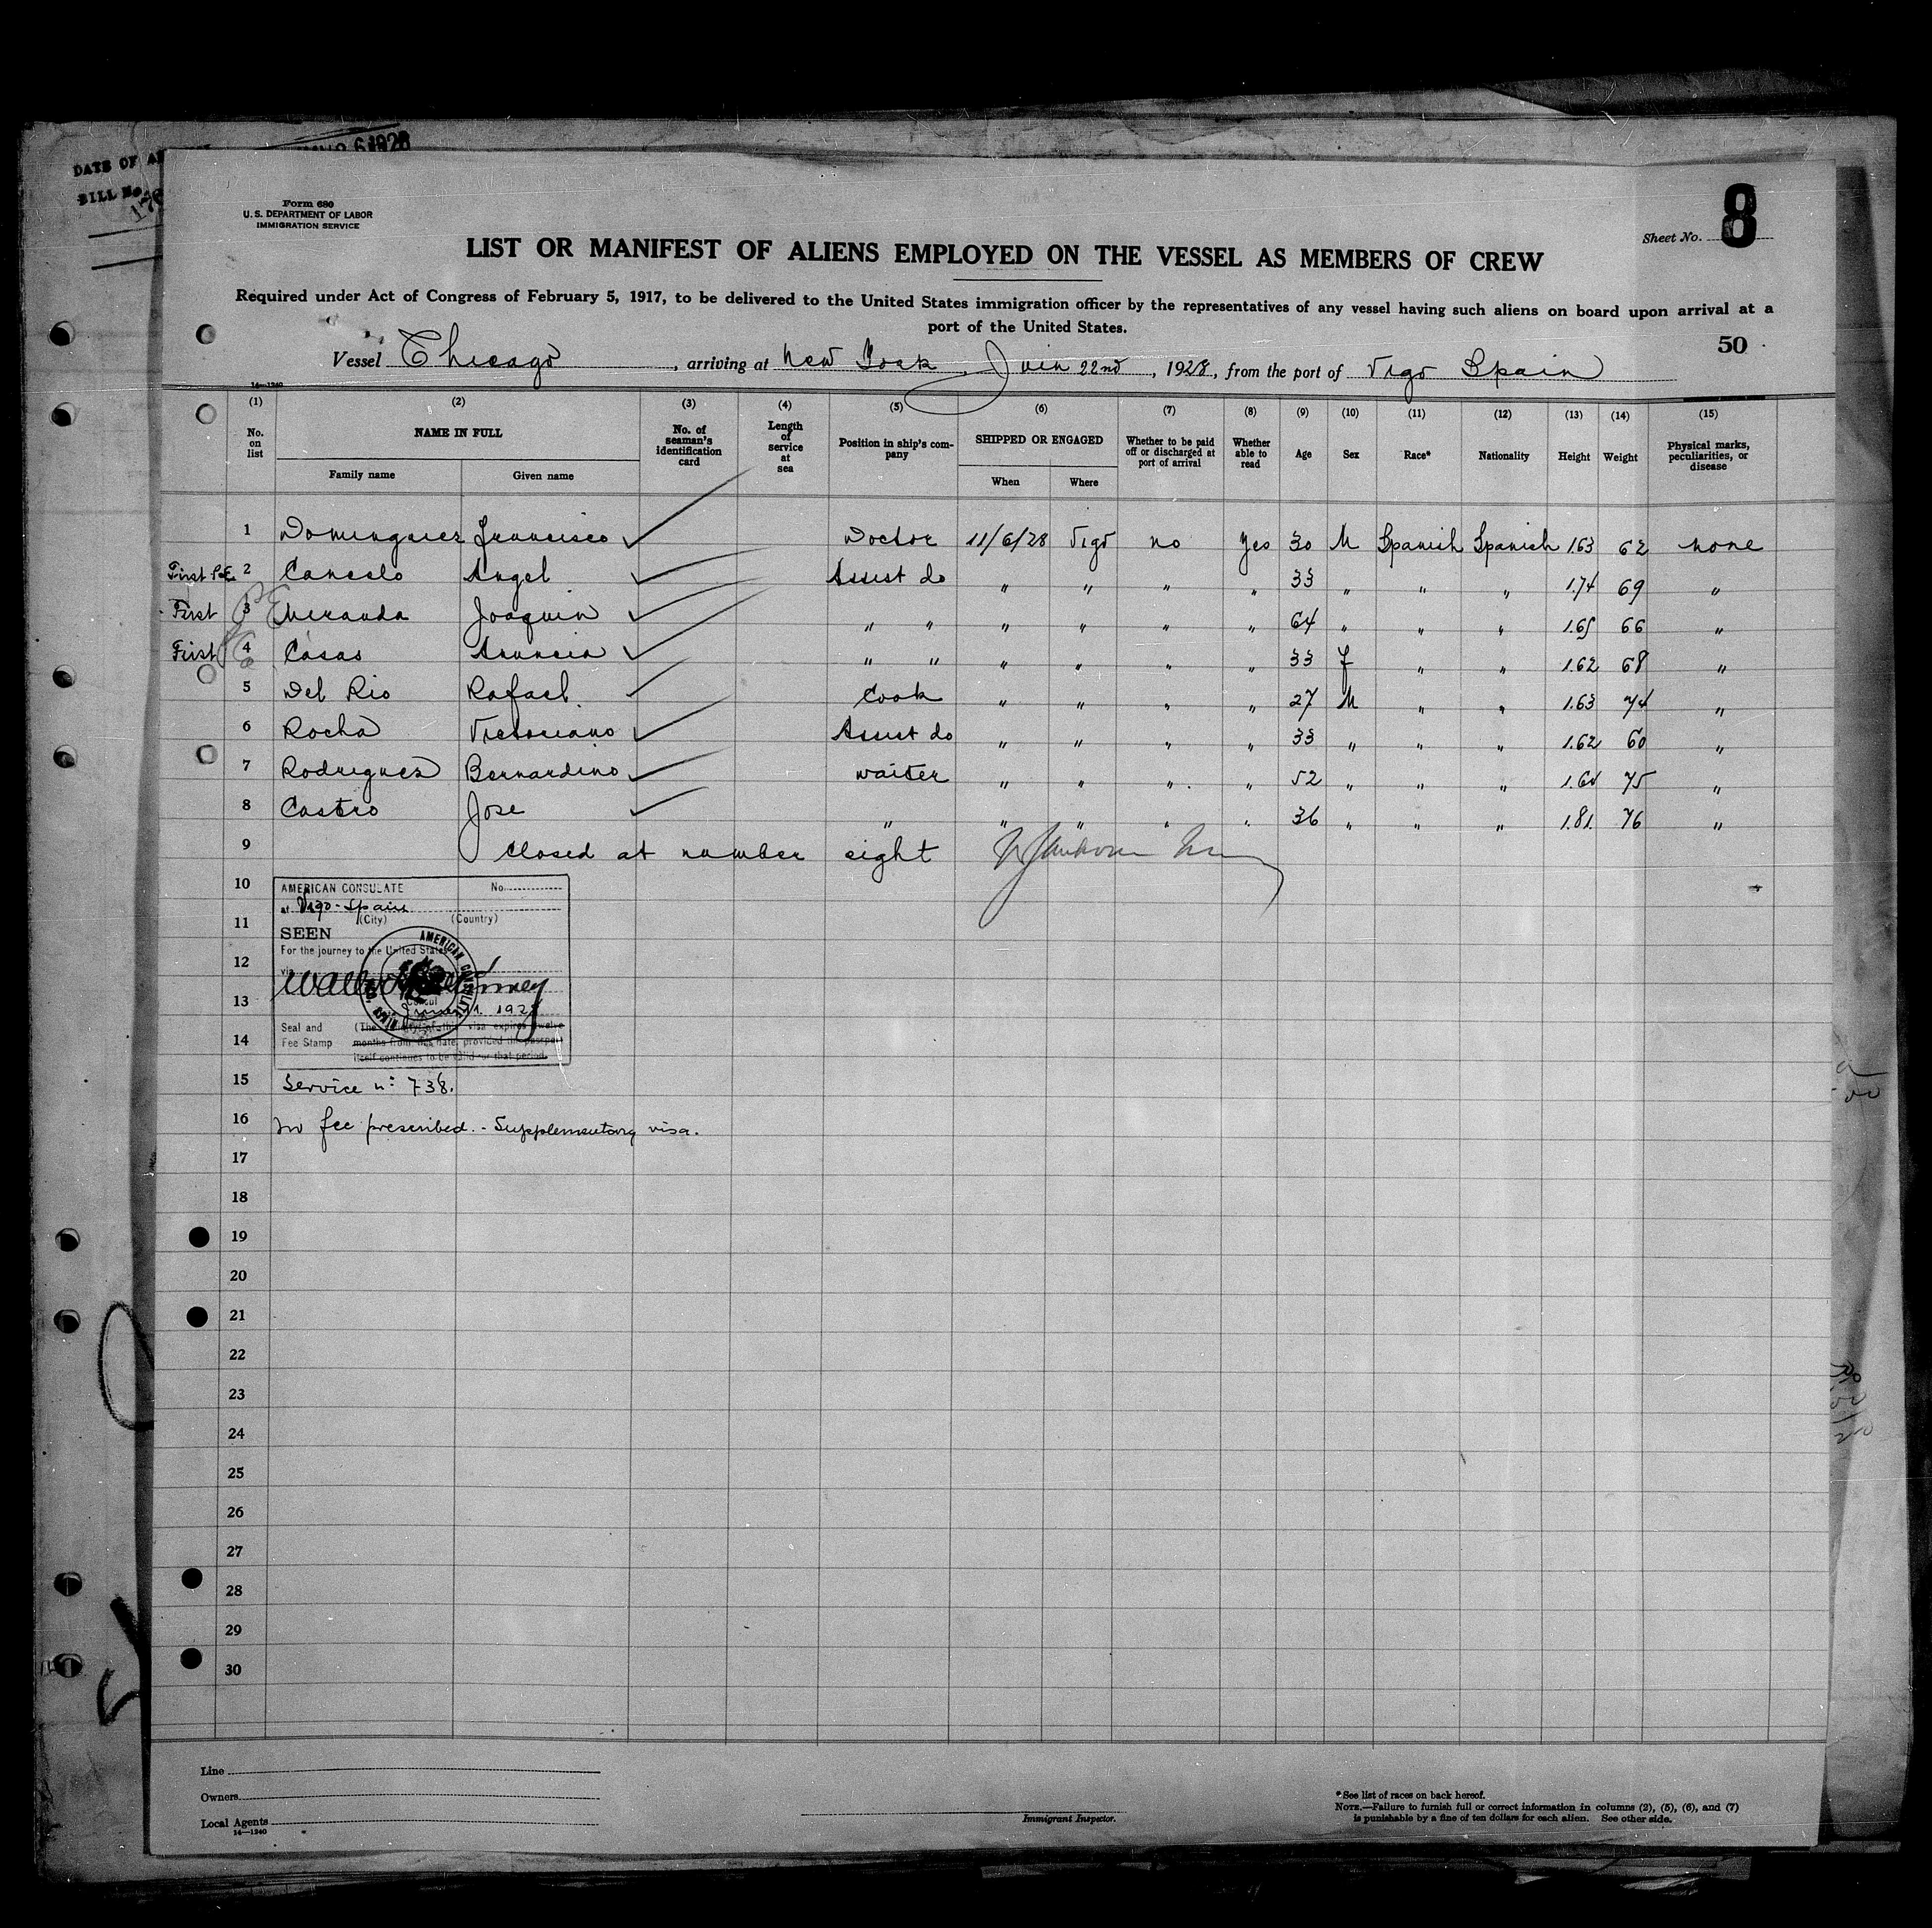 DATE OF
61928
BILL No.
Form 680
U. S. DEPARTMENT OF LABOR
IMMIGRATION SERVICE
Sheet No. 8
LIST OR MANIFEST OF ALIENS EMPLOYED ON THE VESSEL AS MEMBERS OF CREW
Required under Act of Congress of February 5, 1917, to be delivered to the United States immigration officer by the representatives of any vessel having such aliens on board upon arrival at a
port of the United States.
50
Vessel Chicago, arriving at New York, Juin 22nd, 1928, from the port of Vigo Spain
14—1240
(1) (2) (3) (4) (5) (6) (7) (8) (9) (10) (11) (12) (13) (14) (15)
No. on list NAME IN FULL Family name Given name No. of seaman's identification card Length of service at sea Position in ship's company SHIPPED OR ENGAGED When Where Whether to be paid off or discharged at port of arrival Whether able to read Age Sex Race* Nationality Height Weight Physical marks, peculiarities, or disease
1 Dominguez Francisco Doctor 11/6/28 Vigo no Yes 30 M Spanish Spanish 1.63 62 none
First 2 Cancelo Angel Assist do " " " " 33 " " " 1.74 69 "
First 3 Meranda Joaquin " " " " " " 64 " " " 1.65 66 "
First 4 Casas " " " " " " 33 f " " 1.62 68 "
5 Del Rio Rafael Cook " " " " 27 M " " 1.63 74 "
6 Rocha Victoriano Assist do " " " " 33 " " " 1.62 60 "
7 Rodriguez Bernardino waiter " " " " 52 " " " 1.64 75 "
8 Castro Jose " " " " " 36 " " " 1.81 76 "
9 Closed at number eight
10
11
12
13
14
15
16
17
18
19
20
21
22
23
24
25
26
27
28
29
30
AMERICAN CONSULATE No.
at Vigo - Spain
(City) (Country)
SEEN
For the journey to the United States
via
Consul
1928
AMERICAN CONSULATE
Seal and Fee Stamp
(The validity of this visa expires twelve
months from this date, provided the passport
itself continues to be valid for that period.
Service nº 738.
no fee prescribed. - Supplementary visa.
Line
Owners
Local Agents
14—1240
Immigrant Inspector.
*See list of races on back hereof.
NOTE.—Failure to furnish full or correct information in columns (2), (5), (6), and (7)
is punishable by a fine of ten dollars for each alien. See other side.